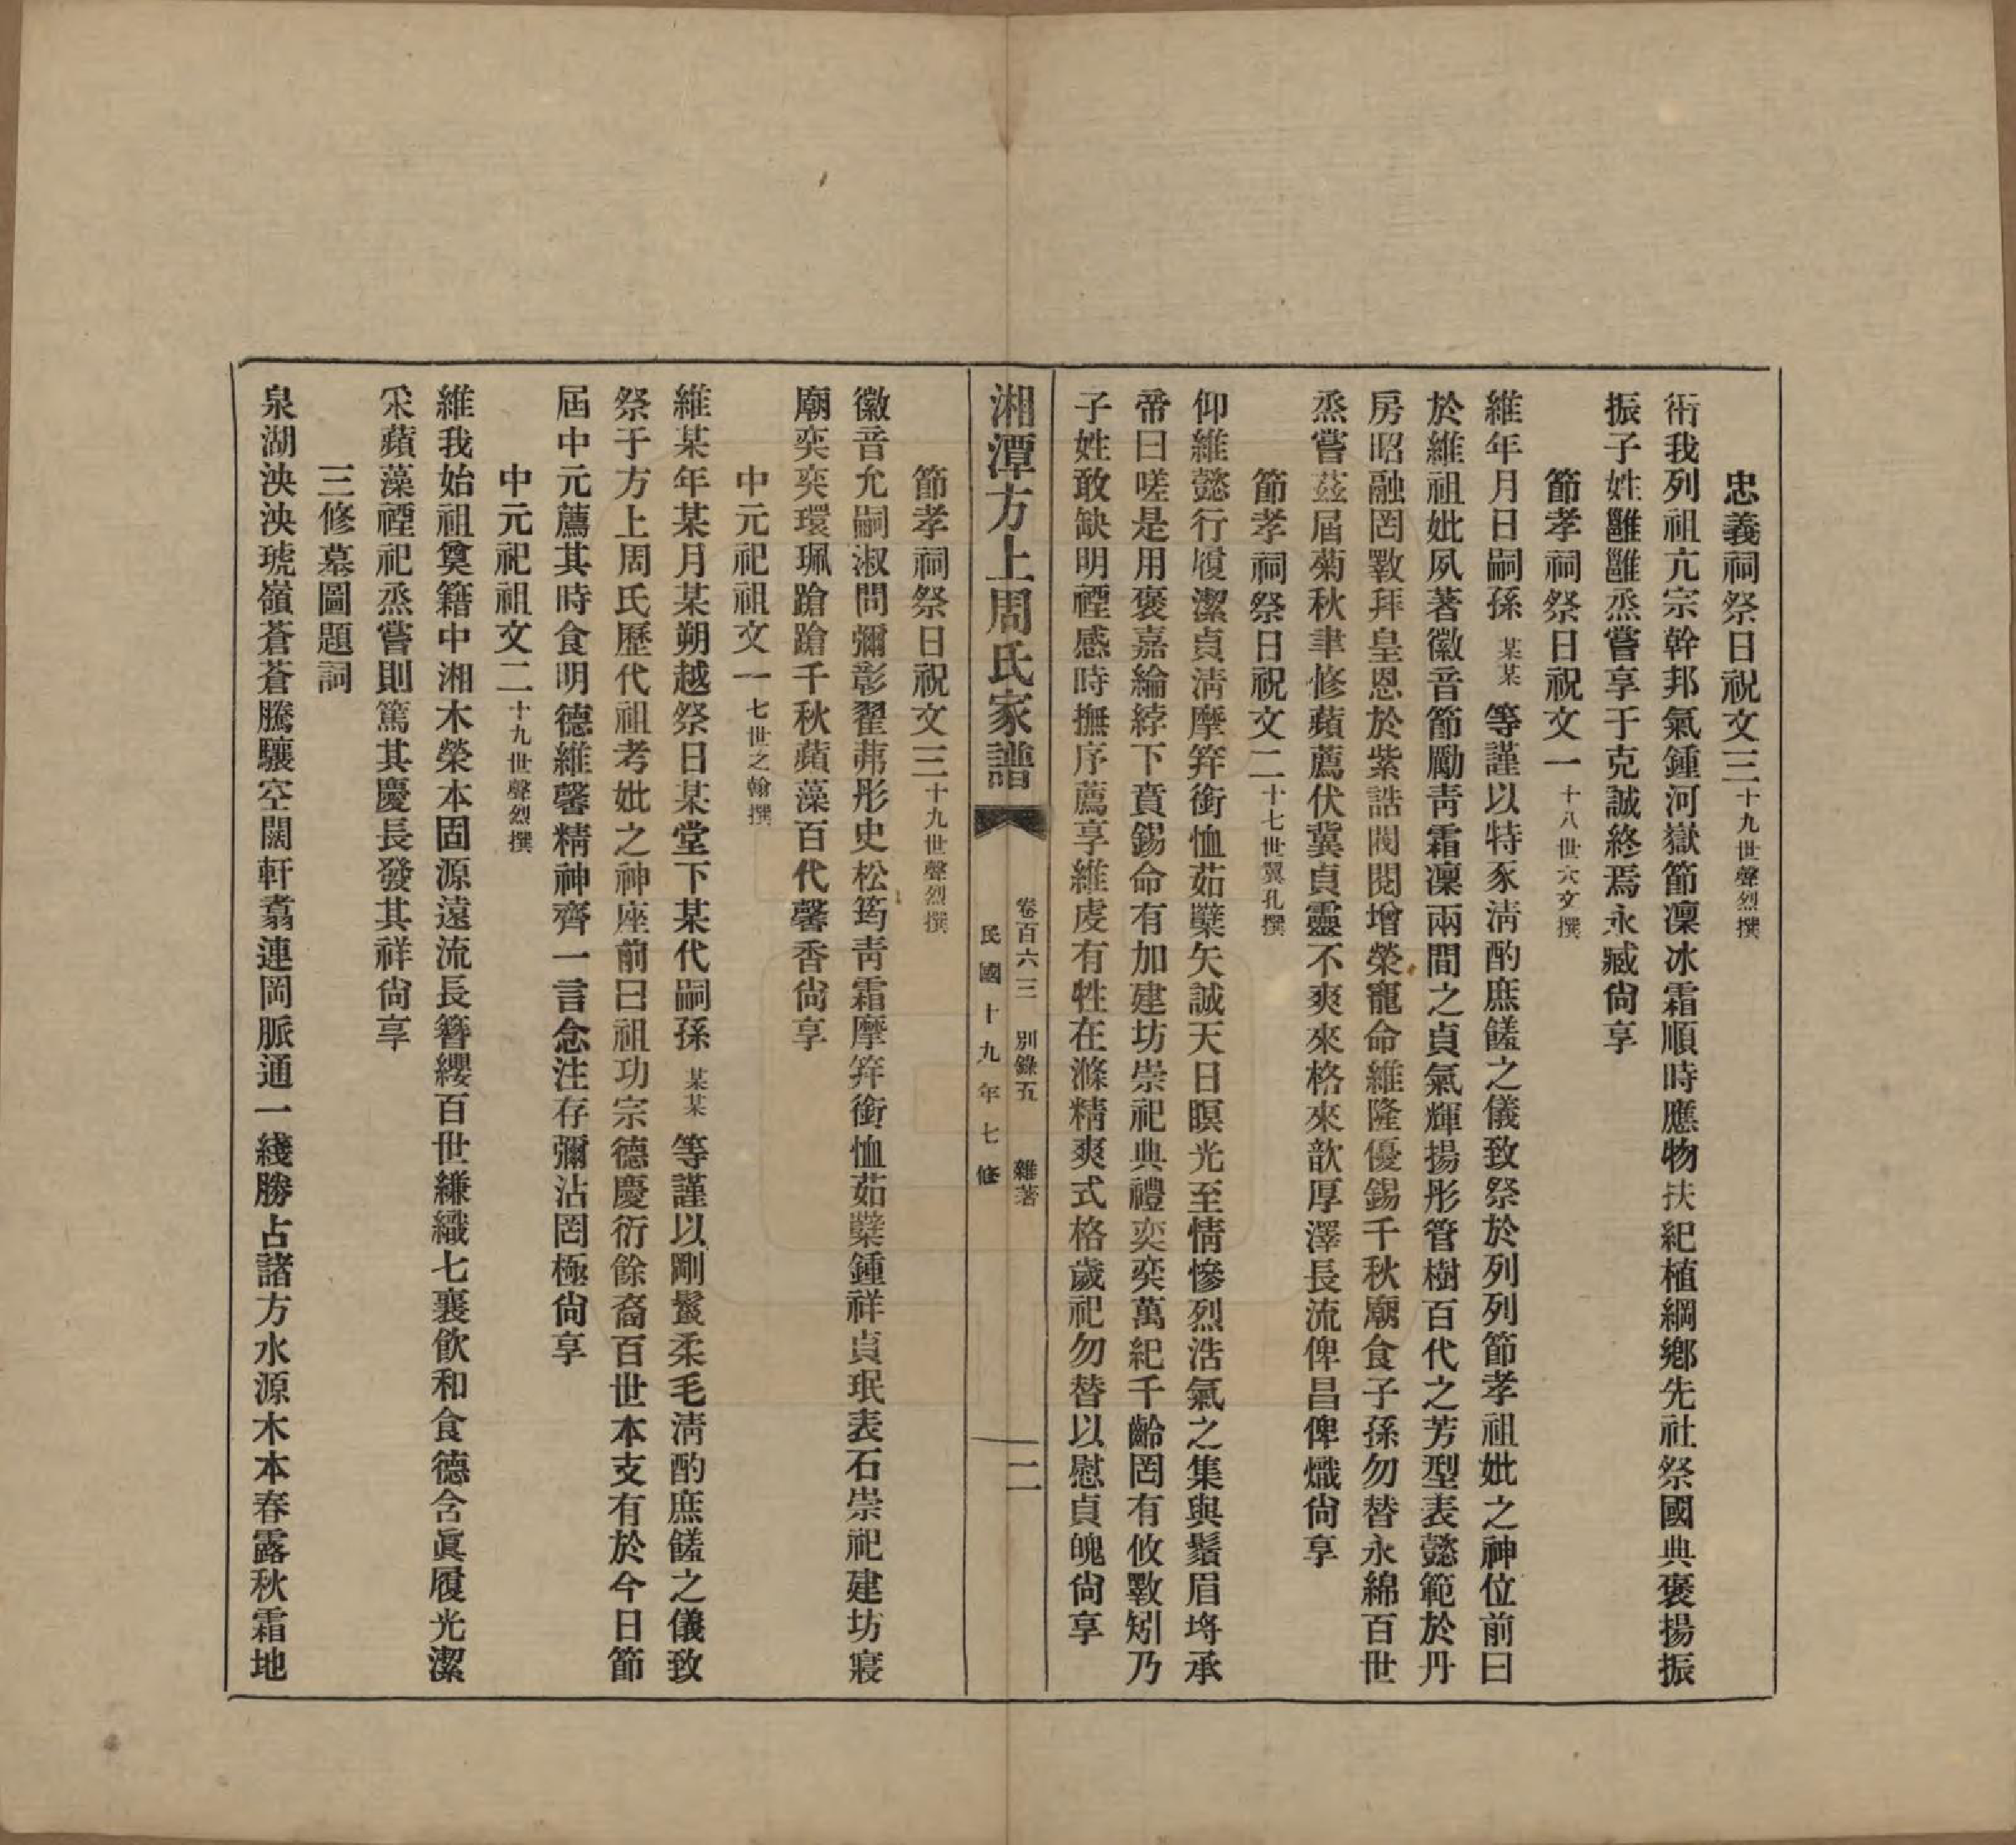 忠義祠祭日祝文三十九世聲烈撰
術我列祖亢宗幹邦氣鍾河嶽節凜冰霜順時應物扶紀植綱鄉先社祭國典褒揚振
振子姓雝雝烝嘗享于克誠終焉永臧尙享
節孝祠祭日祝文一十八世六文撰
維年月日嗣孫某某等謹以特豕淸酌庶饈之儀致祭於列列節孝祖妣之神位前曰
於維祖妣夙著徽音節勵靑霜凜兩間之貞氣輝揚彤管樹百代之芳型表懿範於丹
房昭融罔斁拜皇恩於紫誥閥閱增榮寵命維隆優錫千秋廟食子孫勿替永綿百世
烝嘗茲屆菊秋聿修蘋薦伏冀貞靈不爽來格來歆厚澤長流俾昌俾熾尙享
節孝祠祭日祝文二十七世翼孔撰
仰維懿行履潔貞淸摩笄銜恤茹櫱矢誠天日瞑光至情慘烈浩氣之集與鬚眉埒承
帝曰嗟是用褒嘉綸綍下賁錫命有加建坊崇祀典禮奕奕萬紀千齡罔有攸斁矧乃
子姓敢缺明禋感時撫序薦享維虔有牲在滌精爽式格歲祀勿替以慰貞魄尙享
湘潭方上周氏家譜
卷百六三 別錄五 雜著
二
民國十九年七修
節孝祠祭日祝文三十九世聲烈撰
徽音允嗣淑問彌彰翟茀彤史松筠靑霜摩笄銜恤茹櫱鍾祥貞珉表石崇祀建坊寢
廟奕奕環珮蹌蹌千秋蘋藻百代馨香尙享
中元祀祖文一七世之翰撰
維某年某月某朔越祭日某堂下某代嗣孫某某等謹以剛鬛柔毛淸酌庶饈之儀致
祭于方上周氏歷代祖考妣之神座前曰祖功宗德慶衍餘裔百世本支有於今日節
屆中元薦其時食明德維馨精神齊一言念注存彌沾罔極尙享
中元祀祖文二十九世聲烈撰
維我始祖奠籍中湘木榮本固源遠流長簪纓百世縑織七襄飲和食德含眞履光潔
采蘋藻禋祀烝嘗則篤其慶長發其祥尙享
三修墓圖題詞
泉湖泱泱琥嶺蒼蒼騰驤空闊軒翥連岡脈通一綫勝占諸方水源木本春露秋霜地